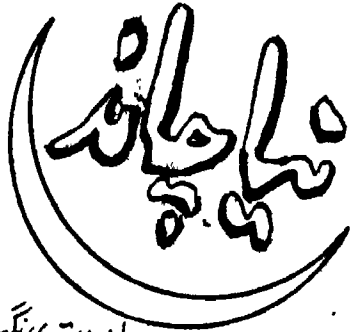 نیا چاند